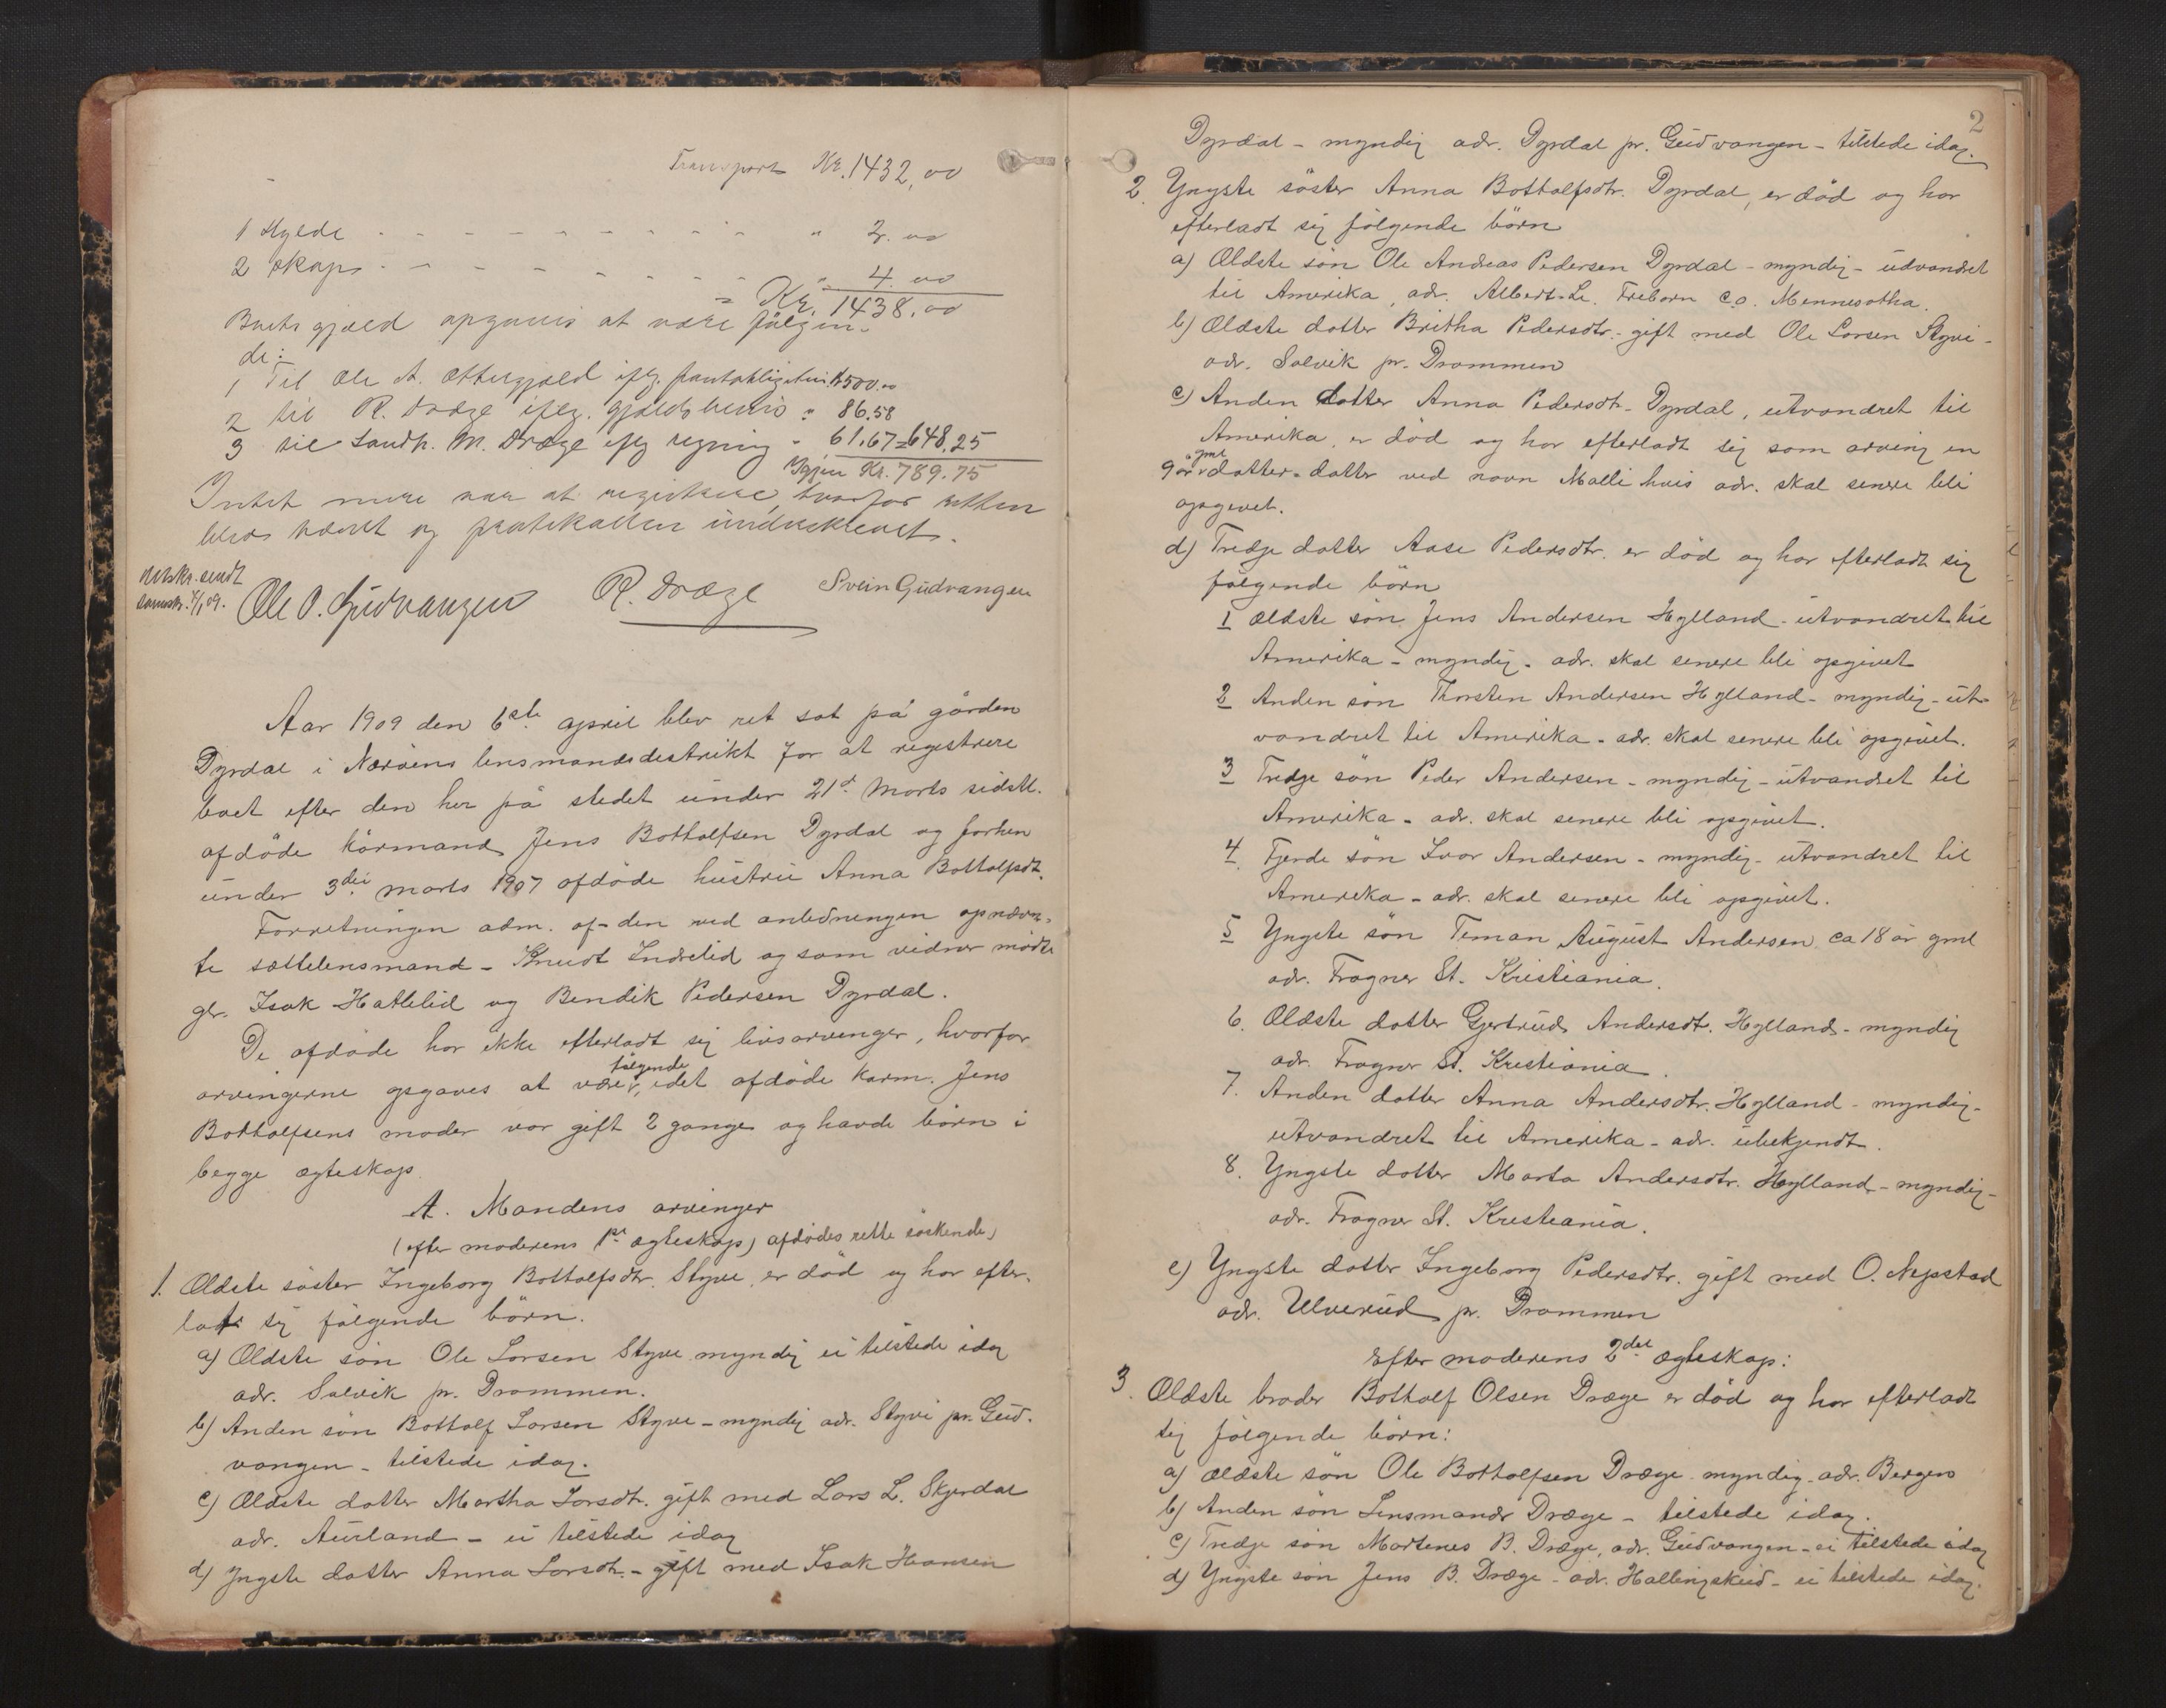 Transport Kr. 1432,00
1 Hylde " 2.00
2 skap " 4.00
= Kr. 1438,00
Boets gjæld opgaves at være følgen-
de:
1 Til Ole A. Ottergjæld iflg. pantobligation " 500.00
2 til R. Dræge iflg. gjældsbevis " 86.58
3 til Landh. M. Dræge iflg regning " 61.67 = 648,25
Igjen Kr. 789.75
Intet mere var at registrere, hvorfor retten
blev hævet og protokollen underskrevet.
Utskr. sendt
Ole O. Gudvangen R. Dræge Svein Gudvangen
Aar 1909 den 6te april blev ret sat på gården
Dyrdal i Nærøens lensmandsdestrikt for at registrere
boet efter den her på stedet under 21de marts sidstl.
afdøde kårmand Jens Botholfsen Dyrdal og forhen
under 3die marts 1907 afdøde hustru Anna Bottolfsdt.
Forretningen adm. af den ved anledningen opnævn-
te sættelensmand - Knudt Indrelid og som vidner mödte
gbr. Isak Hatlelid og Bendik Pedersen Dyrdal.
De afdøde har ikke efterladt sig livsarvinger, hvorfor
arvingerne opgaves at være følgende, idet afdøde kårm. Jens
Bottolfsens moder var gift 2 gange og havde börn i
begge ægteskap.
A. Mandens arvinger
(efter moderens 1ste ægteskap) afdødes rette söskende)
1. Ældste söster Ingeborg Bottolfsdtr. Styve, er död og har efter-
lat sig følgende börn.
a) Ældste sön Ole Larsen Styve myndig ei tilstede idag
adr. Solvik pr. Drammen.
b) Anden sön Bottolf Larsen Styve - myndig adr. Styvi pr. Gud-
vangen - tilstede idag.
c) Ældste datter Martha Larsdtr. gift med Lars L. Skjerdal
adr. Aurland - ei tilstede idag
d) Yngste datter Anna Larsdtr. - gift med Isak Hansen
2
Dyrdal - myndig adr. Dyrdal pr. Gudvangen - tilstede idag.
2. Yngste söster Anna Bottolfsdtr. Dyrdal, er död og har
efterladt sig følgende börn
a) Ældste sön Ole Andreas Pedersen Dyrdal - myndig - udvandret
til Amerika, adr. Albert-Le. Freborn Co. Mennesotha.
b) Ældste datter Britha Pedersdtr. - gift med Ole Larsen Styvi -
adr. Solvik pr. Drammen
c) Anden datter Anna Pedersdtr. Dyrdal, utvandret til
Amerika, er død og har efterladt sig som arving en
9 år gml datter-datter ved navn Malli hvis adr. skal senere bli
opgivet.
d) Tredje datter Aase Pedersdtr. er död og har efterladt sig
følgende börn
1 Ældste sön Jens Andersen Hylland - utvandret til
Amerika - myndig - adr. skal senere bli opgivet
2 Anden sön Thorsten Andersen Hylland - myndig - ut-
vandret til Amerika - adr. skal senere bli opgivet.
3 Tredje sön Peder Andersen - myndig - utvandret til
Amerika - adr. skal senere bli opgivet.
4. Fjerde sön Ivar Andersen - myndig - utvandret til
Amerika - adr. skal senere bli opgivet.
5 Yngste sön Teman August Andersen, ca 18 år gml
adr. Frogner St. Kristiania.
6. Ældste datter Gjertrud Andersdt. Hylland - myndig
adr. Frogner St. Kristiania.
7. Anden datter Anna Andersdtr. Hylland - myndig -
utvandret til Amerika - adr. ubekjendt.
8. Yngste datter Marta Andersdtr. Hylland - myndig -
adr. Frogner St. Kristiania.
e) Yngste datter Ingeborg Pedersdtr. gift med O. Nepstad
adr. Ulverud pr. Drammen
Efter moderens 2det ægteskap:
3. Ældste broder Botholf Olsen Dræge er död og har efterladt
sig følgende börn:
a) ældste sön Ole Bottolfsen Dræge - myndig - adr. Bergen
b) Anden sön Lensmand Dræge - tilstede idag.
c) Tredje sön Martenes B. Dræge, adr. Gudvangen - ei tilstede idag
d) Yngste sön Jens B. Dræge - adr. Hallingskeid - ei tilstede idag.